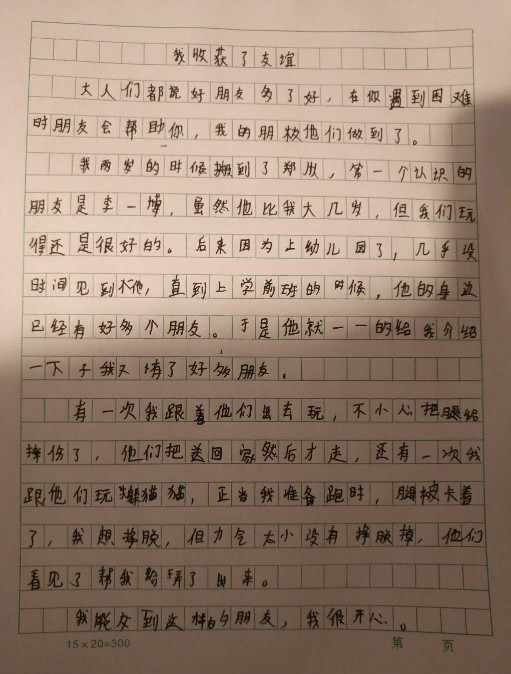 我收获了友谊
大人们都说好朋友多了好，在你遇到困难
时朋友会帮助你，我的朋友他们做到了。
我两岁的时候搬到了郑州，第一个认识的
朋友是李一博，虽然他比我大几岁，但我们玩
得还是很好的。后来因为上幼儿园了，几乎没
时间见到他，直到上学前班的时候，他的身边
已经有好多个朋友。于是他就一一的给我介绍
一下子我又有了好多朋友。
有一次我跟着他们出去玩，不小心把腿给
摔伤了，他们把送回家然后才走，还有一次我
跟他们玩躲猫猫，正当我准备跑时，腿被卡着
了，我想挣脱，但力气太小没有挣脱掉，他们
看见了帮我给弄了出来。
我能交到这样的朋友，我很开心。
15×20=300
第 页